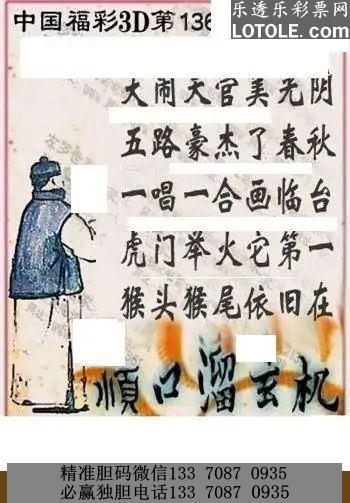 中国福彩3D第136
乐透乐彩票网
LOTOLE.COM
大闹天官美光阴
五路豪杰了春秋
一唱一合画临台
虎门举火它第一
猴头猴尾依旧在
顺口溜玄机
精准胆码微信133 7087 0935
必赢独胆电话133 7087 0935